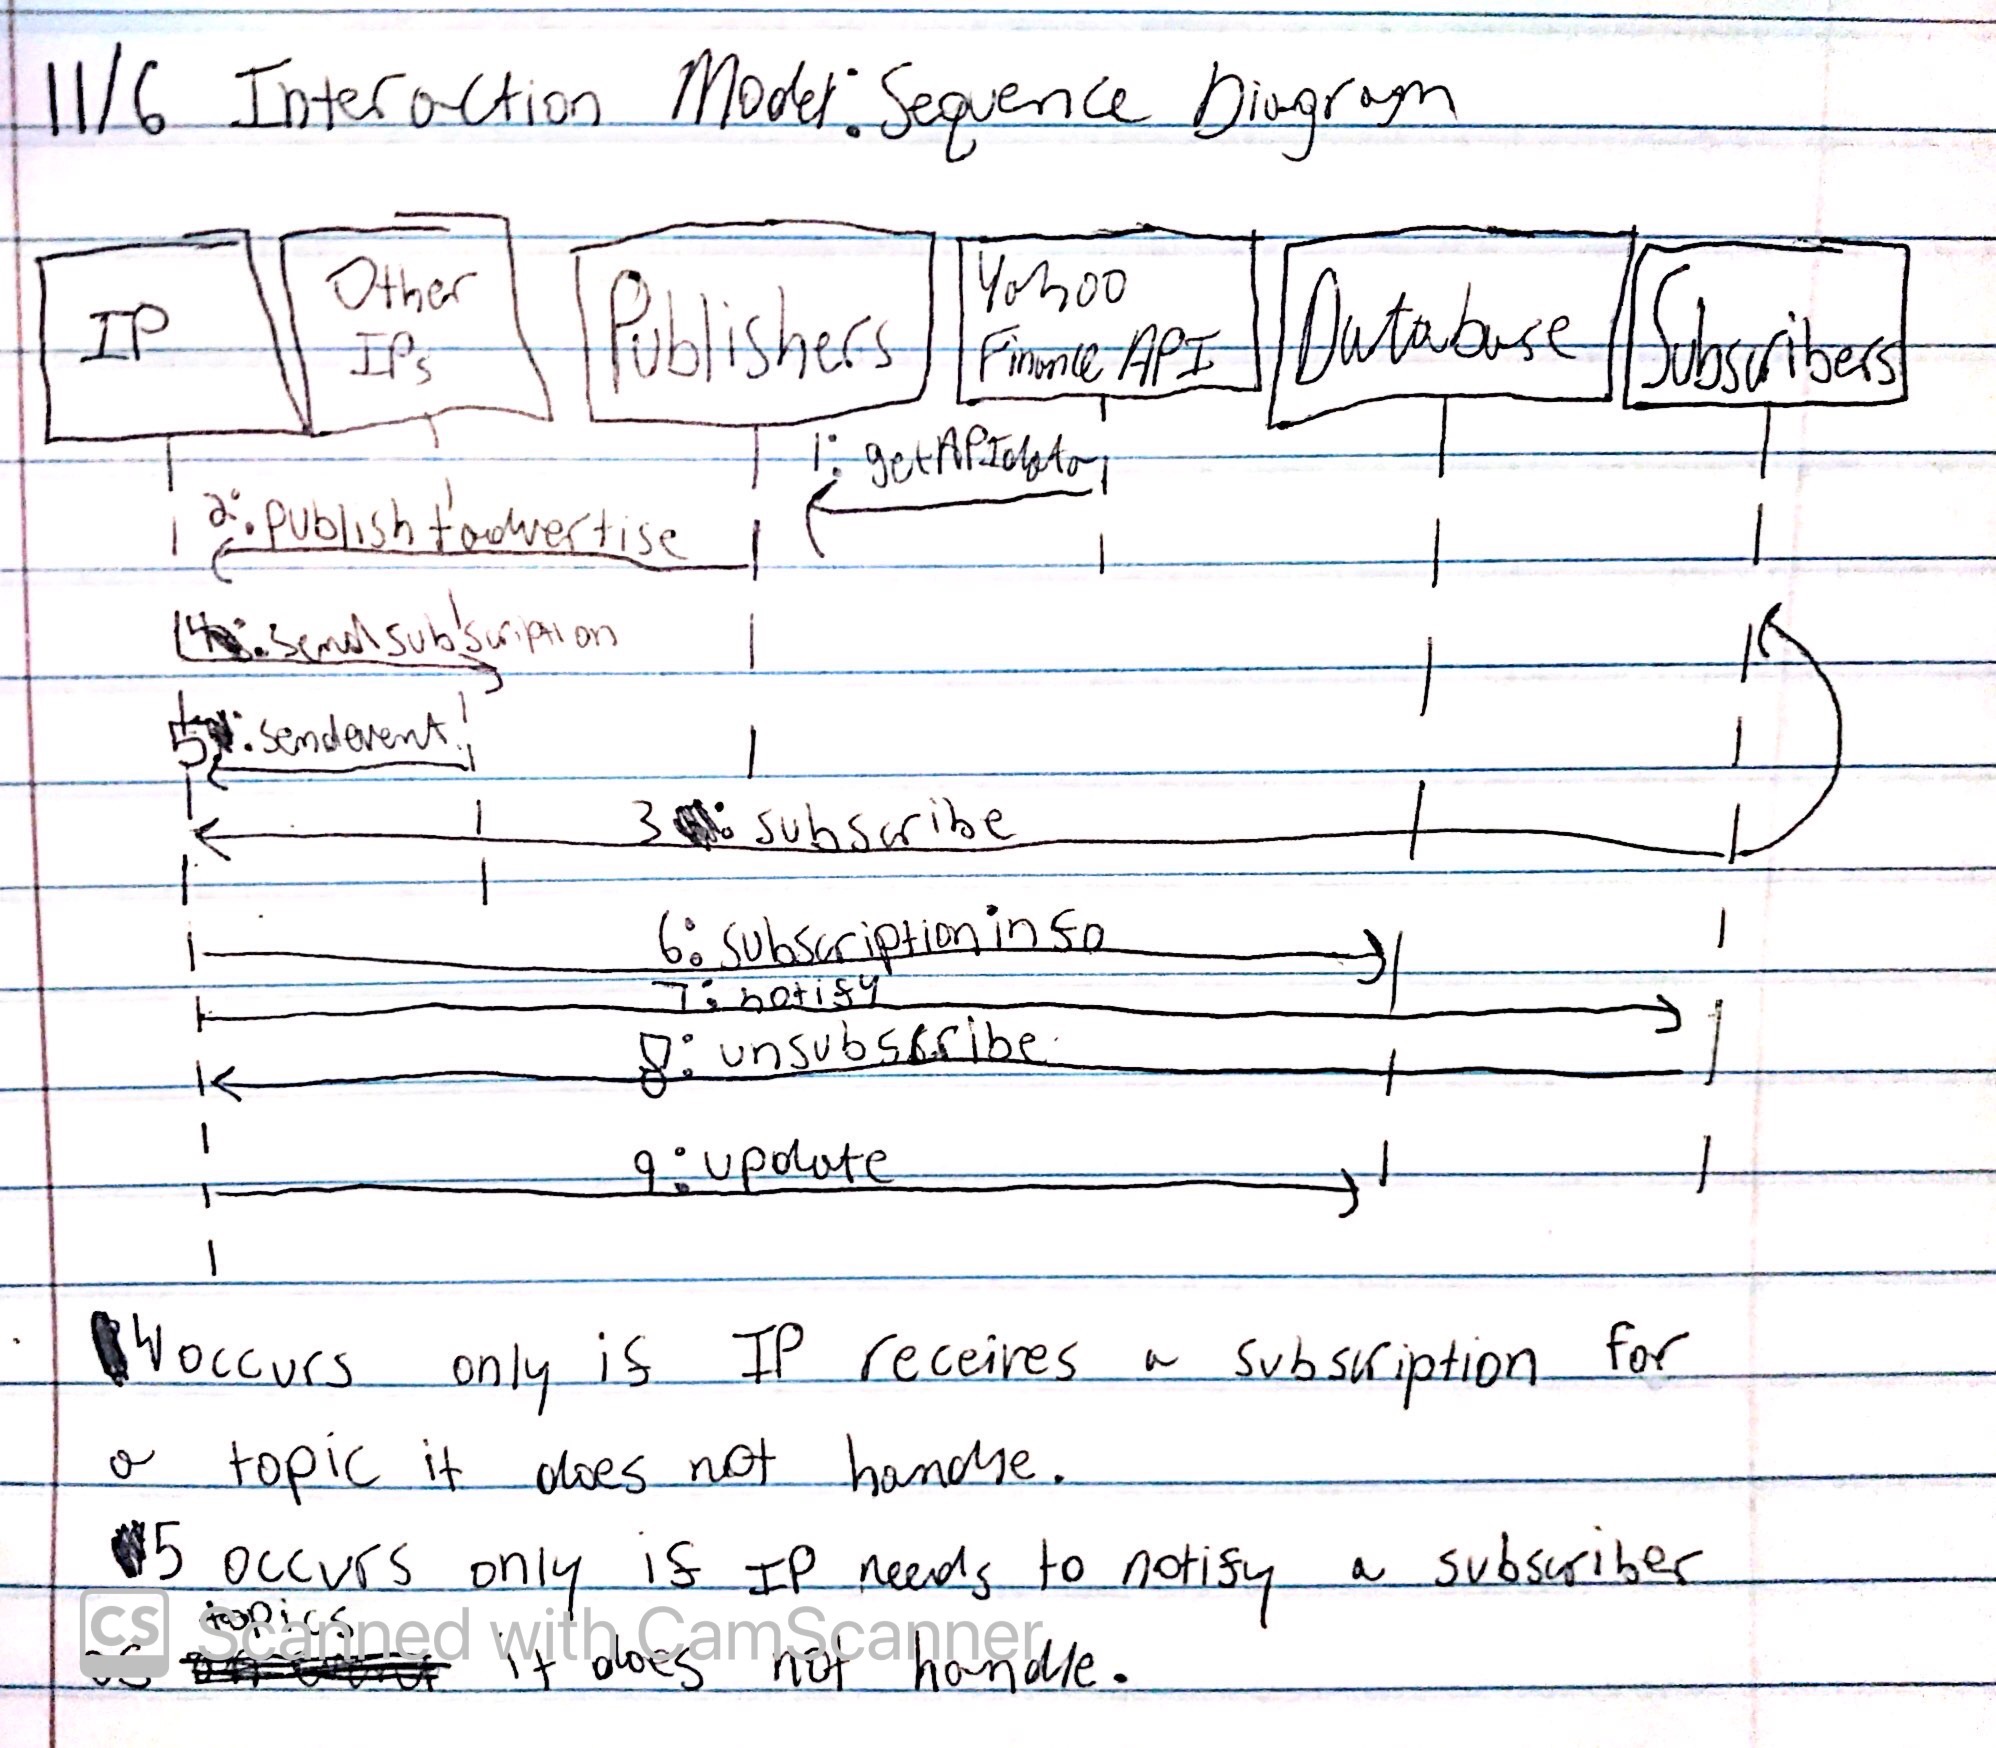 11/6 Interaction Model: Sequence Diagram
IP
Other
IPs
Publishers
Yahoo
Finance API
Database
Subscribers
1: getAPIdata
2: publish + advertise
4: sendsubscription
5: sendevent
3: subscribe
6: subscriptioninfo
7: notify
8: unsubscribe
9: update
4 occurs only if IP receives a subscription for
a topic it does not handle.
5 occurs only if IP needs to notify a subscriber
topics
of it does not handle.
CS Scanned with CamScanner